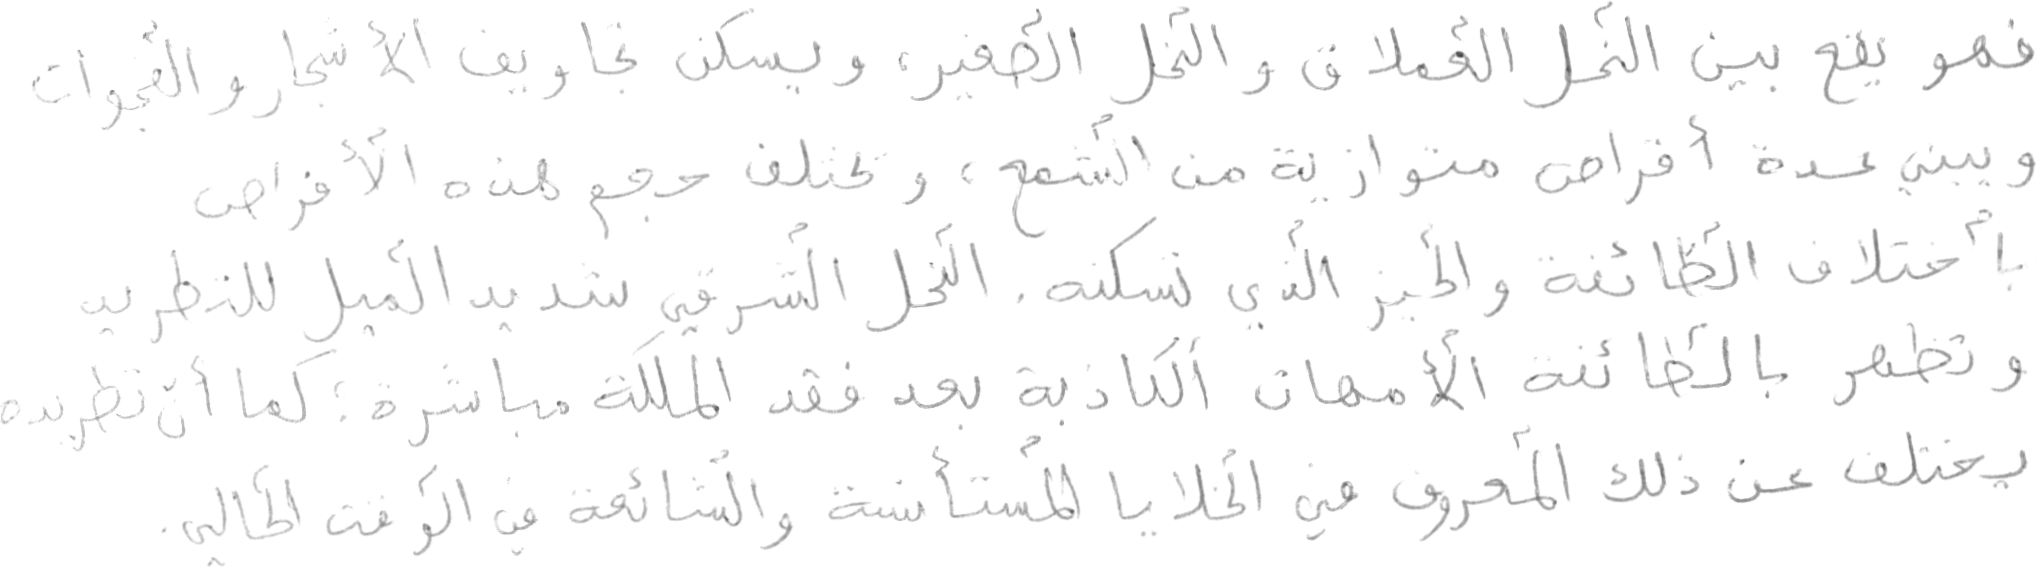 فهو يقع بين النحل العملاق والنحل الصغير، ويسكن تجاويف الأشجار والفجوات
ويبني عدة أقراص متوازية من الشمع، وتختلف حجم هذه الأقراص
بأختلاف الطائفة والحيز الذي تسكنه. النحل الشرقي شديد الميل للتطريد
وتظهر بالطائفة الأمهات الكاذبة بعد فقد الملكة مباشرة؛ كما أن تطريده
يختلف عن ذلك المعروف في الخلايا المستأنسة والشائعة في الوقت الحالي.